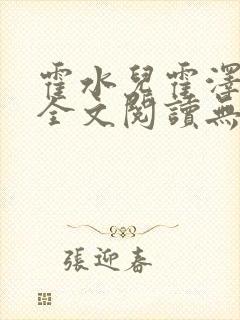 霍水兒霍澤
全文閱讀無
張迎春